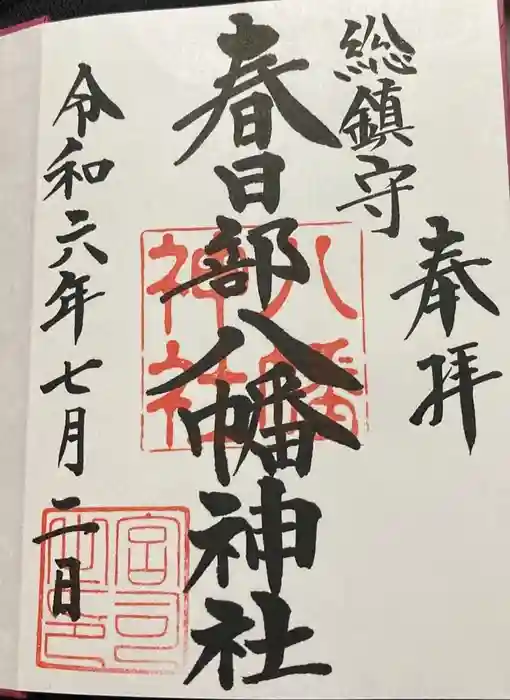 奉拝
総鎮守
春日部八幡神社
令和六年七月二日
八幡
神社
宮司
之印